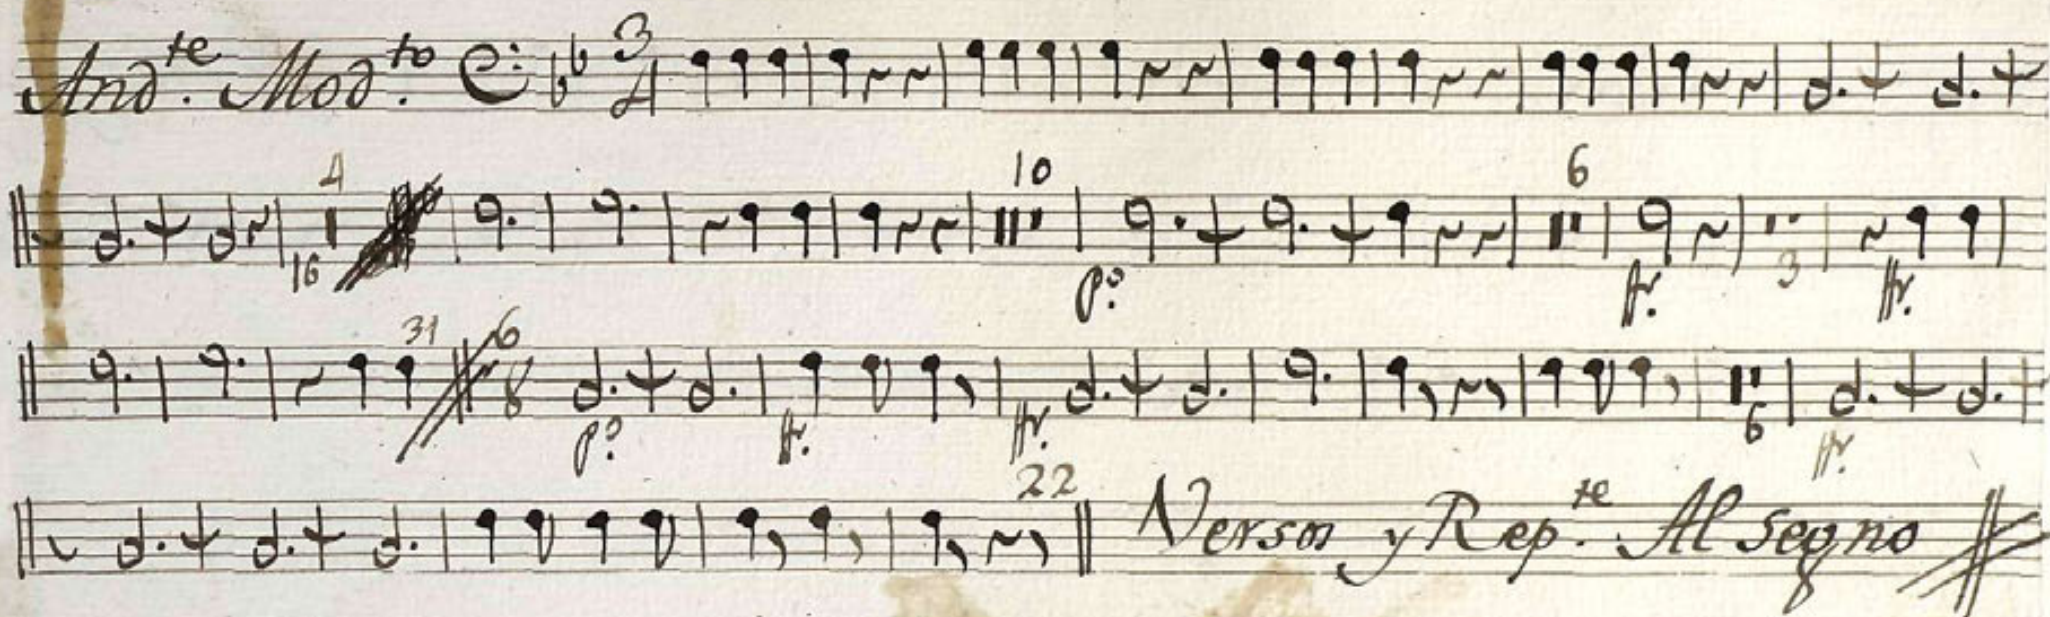 And.te Mod.to 3 4
4 10 6
16 p.o fr. 3 fr.
31 6 8
p.o fr. fr. 6 fr.
22
Versos y Rep.te Al segno